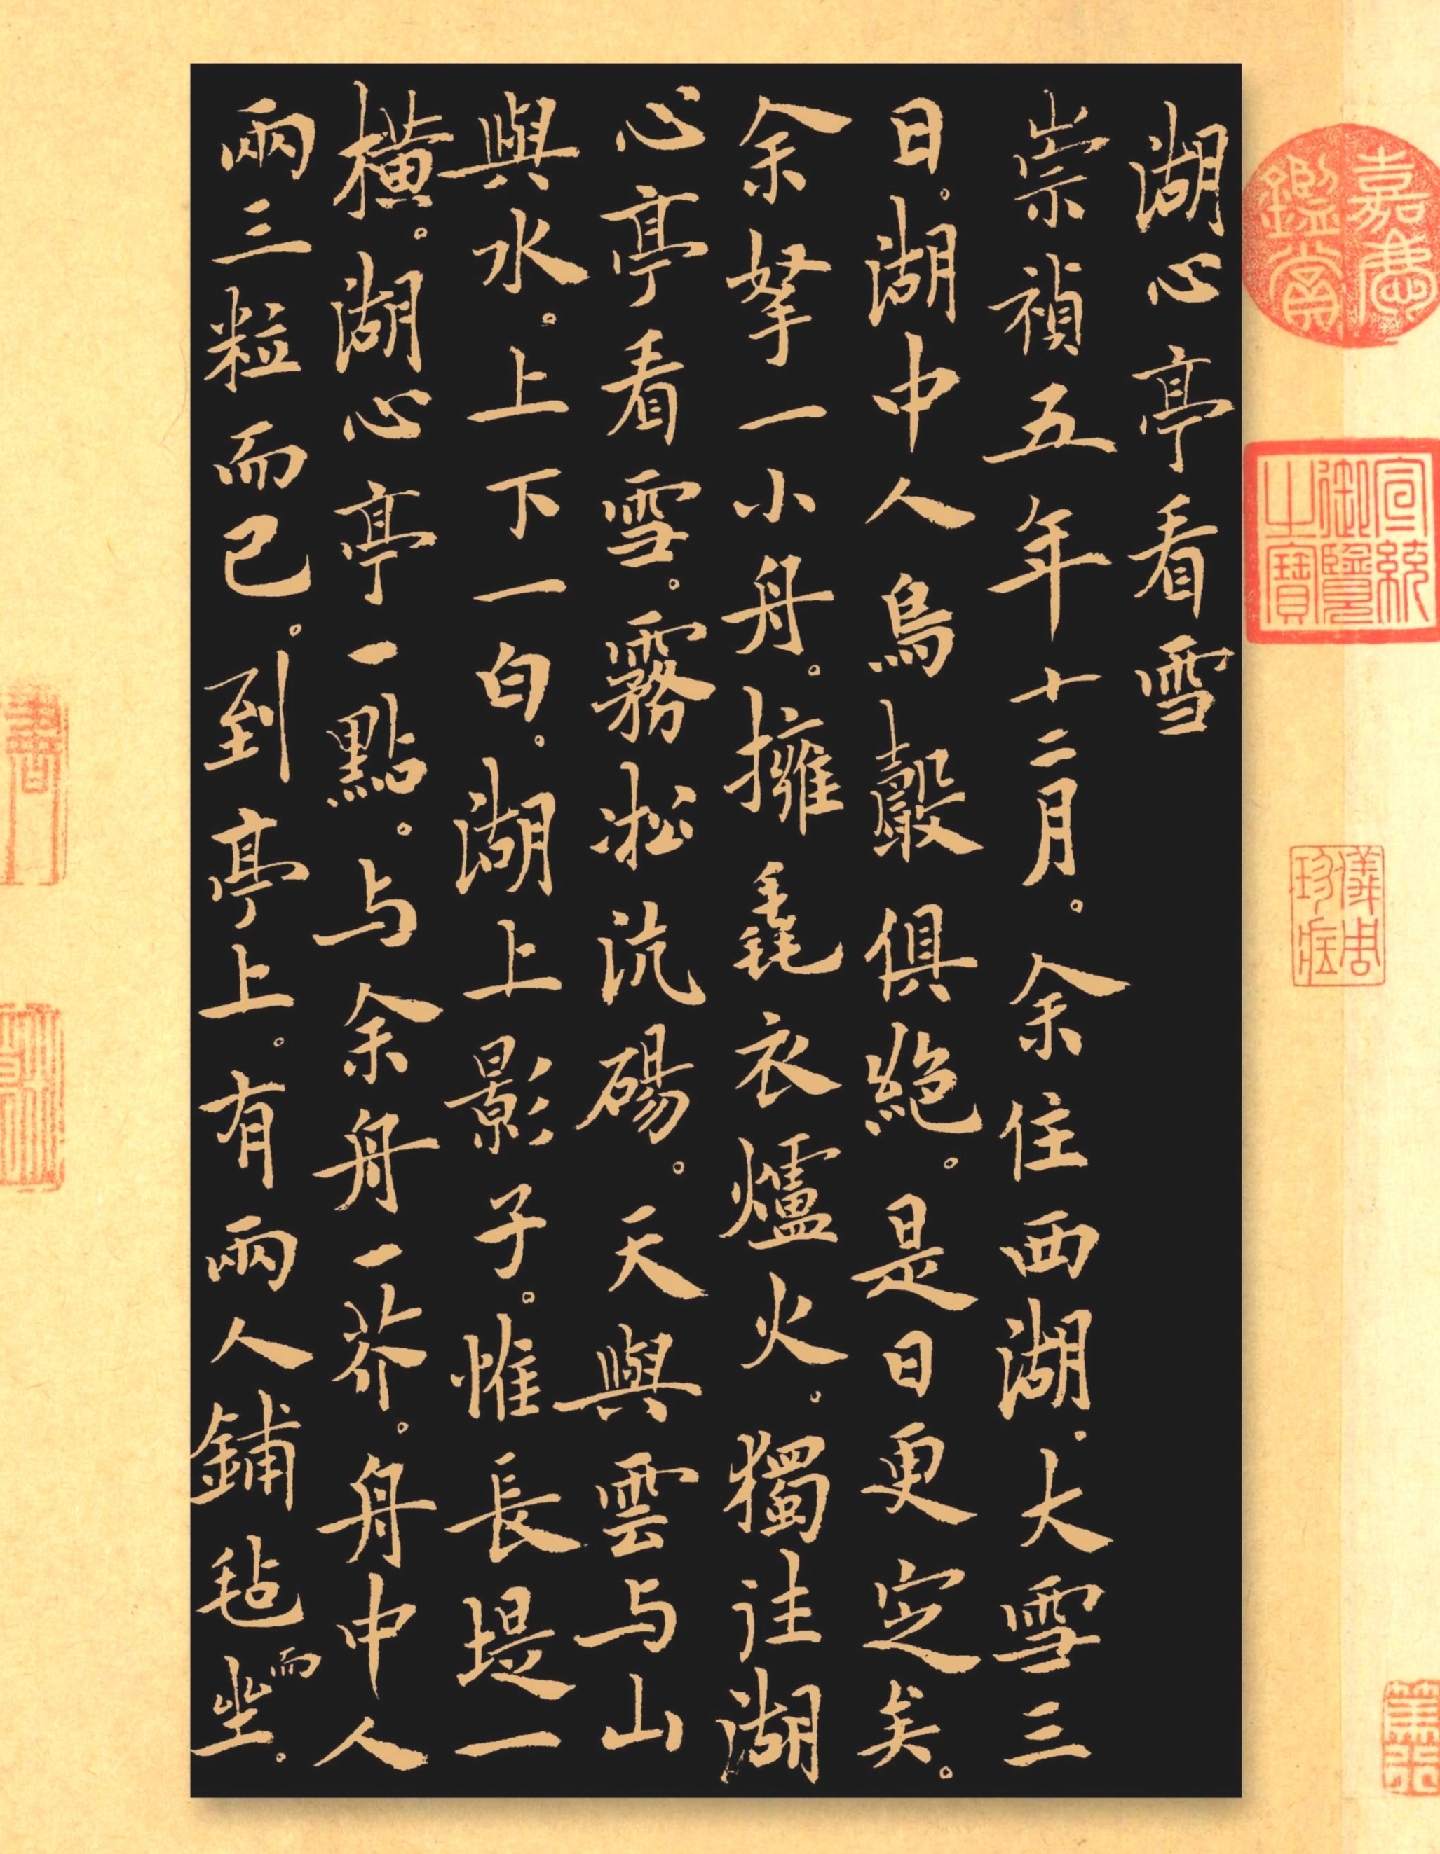 嘉慶
鑑賞
宣統
御覽
之寶
儀周
珍藏
湖心亭看雪
崇禎五年十二月。余住西湖。大雪三
日。湖中人鳥聲俱絕。是日更定矣。
余拏一小舟。擁毳衣爐火。獨往湖
心亭看雪。霧凇沆碭。天與雲与山
與水。上下一白。湖上影子。惟長堤一
橫。湖心亭一點。与余舟一芥。舟中人
兩三粒而已。到亭上。有兩人鋪毡而坐。